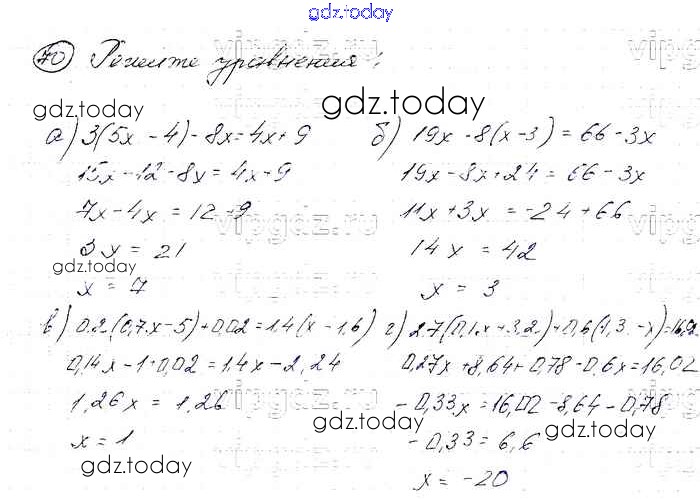 gdz.today
70 Решите уравнения:
gdz.today
gdz.today
а) 3(5x - 4) - 8x = 4x + 9
б) 19x - 8(x - 3) = 66 - 3x
15x - 12 - 8x = 4x - 9
19x - 8x + 24 = 66 - 3x
7x - 4x = 12 + 9
11x + 3x = -24 + 66
3x = 21
14x = 42
gdz.today
x = 7
x = 3
в) 0,2(0,7x - 5) + 0,02 = 1,4(x - 1,6)
г) 2,7(0,1x + 3,2) + 0,6(1,3 - x) = 16,02
0,14x - 1 + 0,02 = 1,4x - 2,24
0,27x + 8,64 + 0,78 - 0,6x = 16,02
1,26x = 1,26
- 0,33x = 16,02 - 8,64 - 0,78
gdz.today
gdz.today
x = 1
- 0,33 = 6,6
gdz.today
x = -20
vipgdz.ru